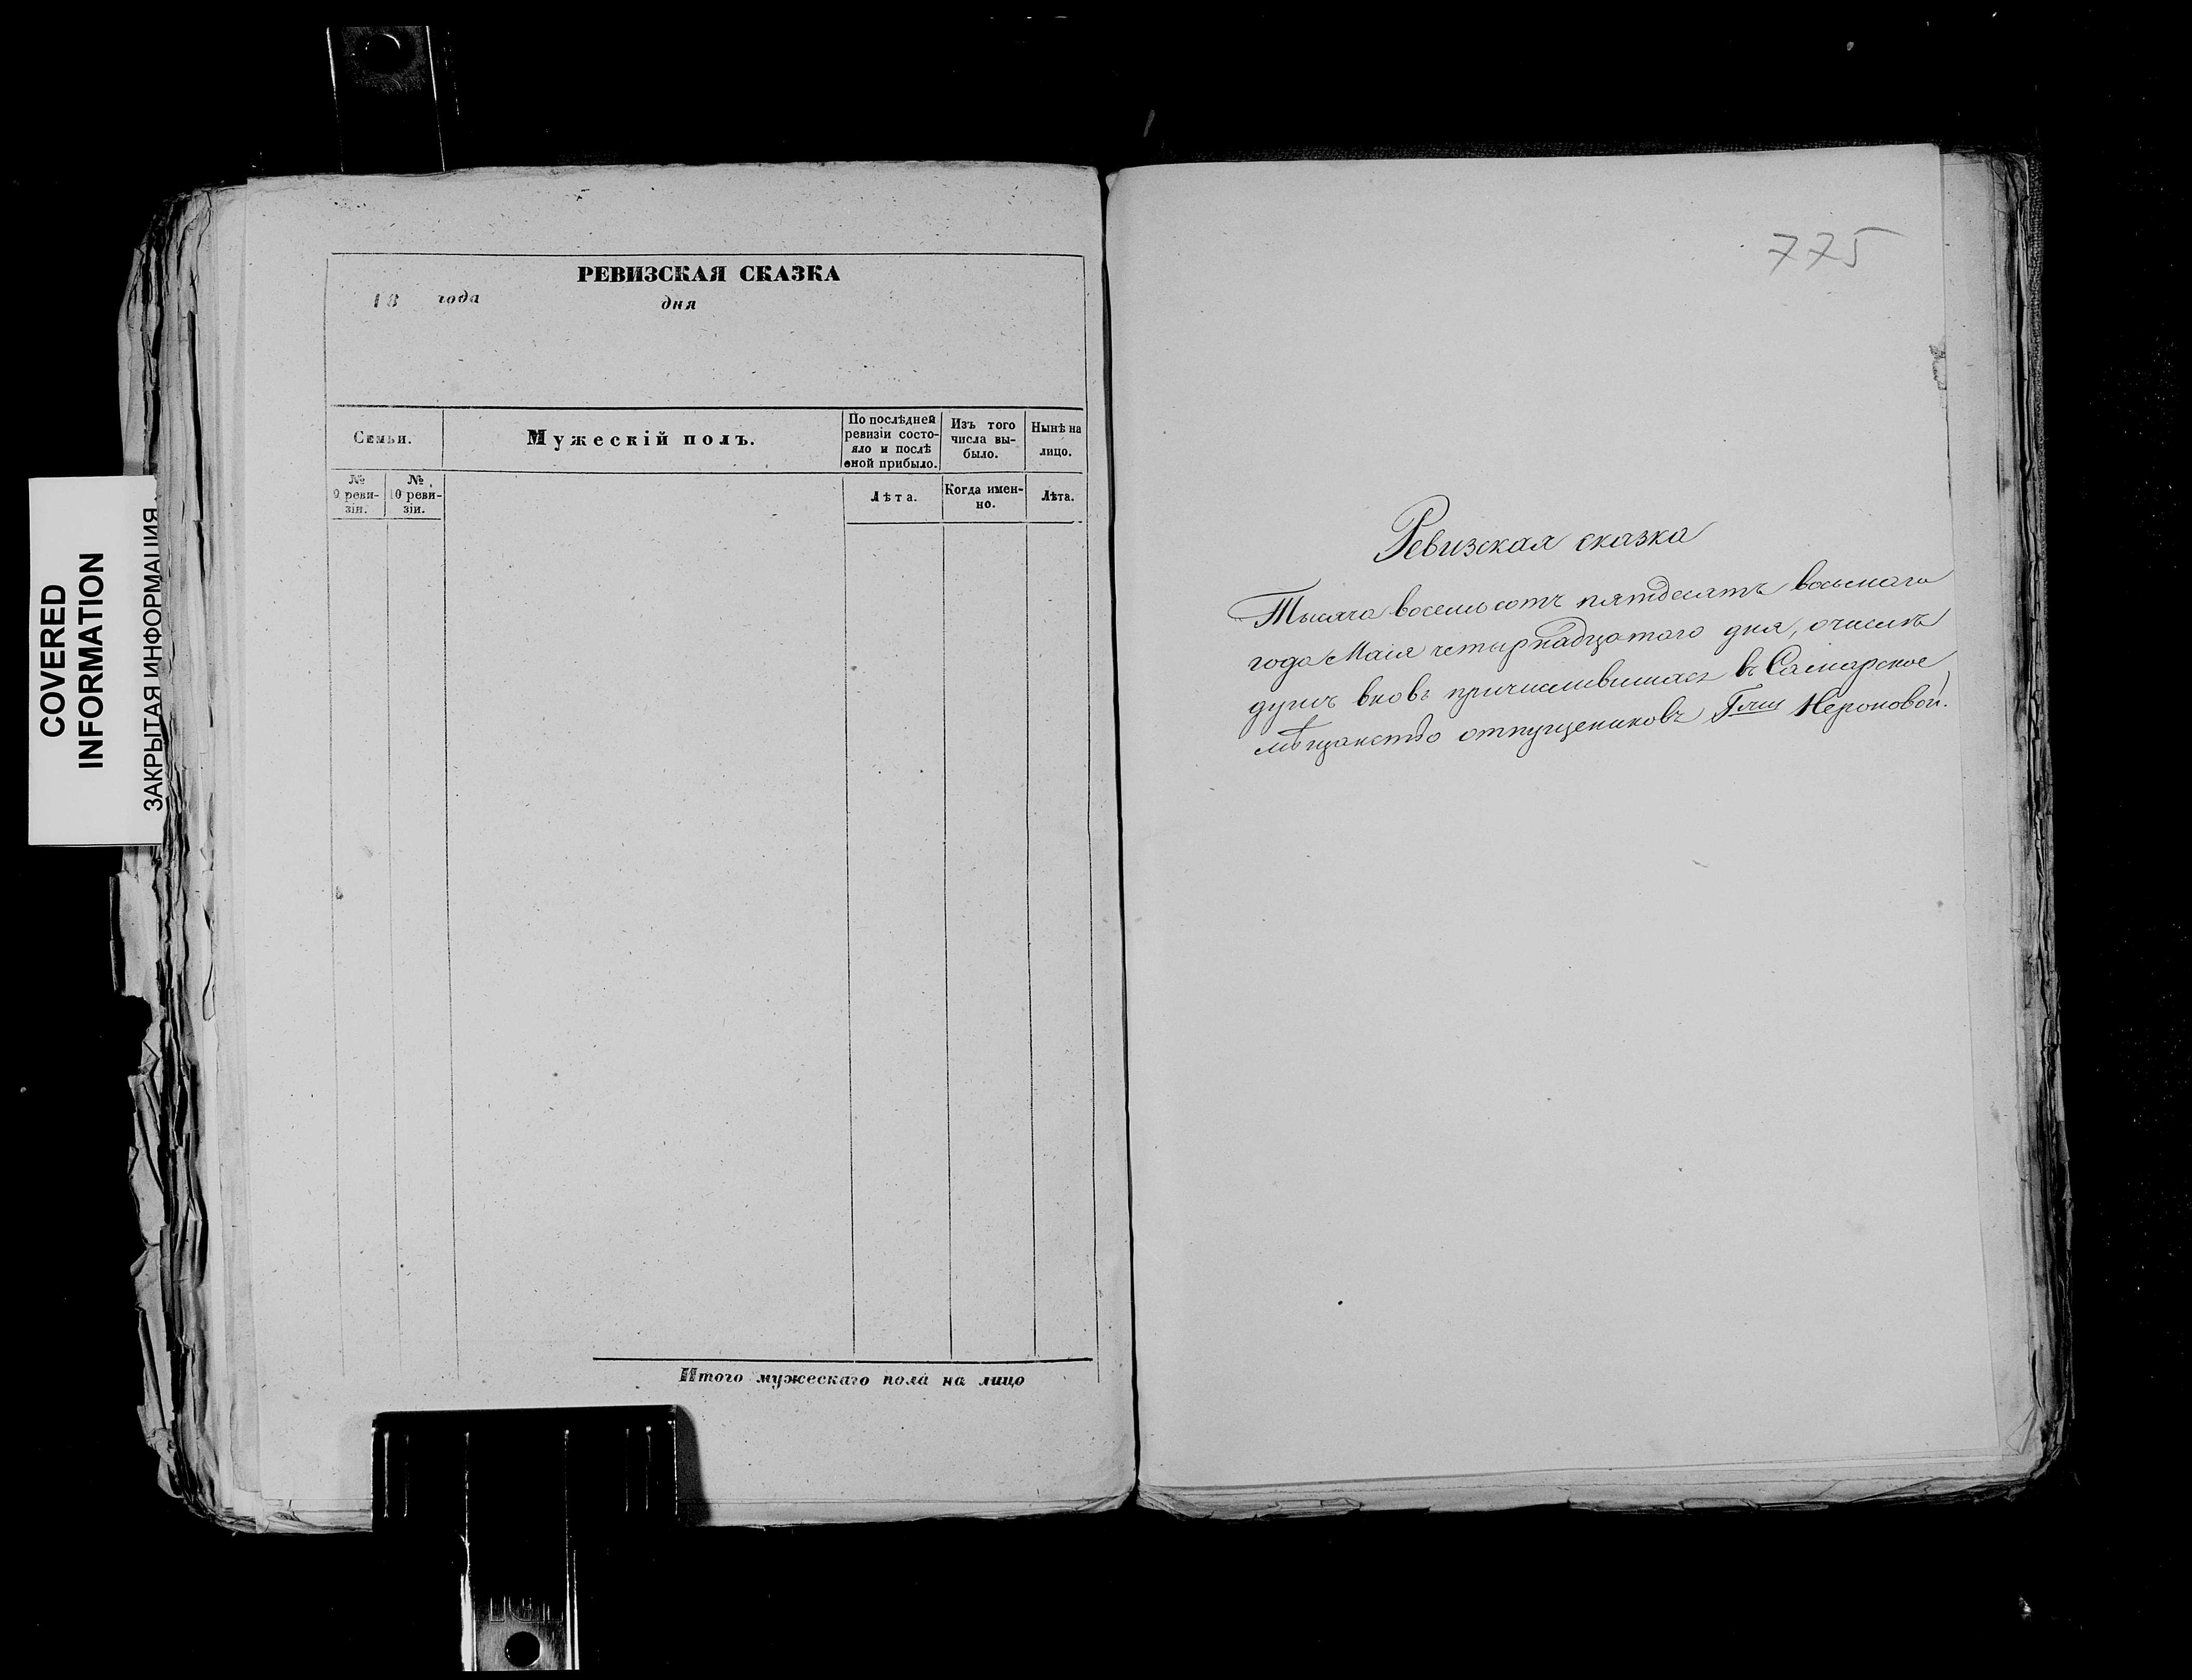 COVERED
INFORMATION
ЗАКРЫТАЯ ИНФОРМАЦИЯ
РЕВИЗСКАЯ СКАЗКА
18 года дня
Семьи.
Мужескій полъ.
По послѣдней
ревизіи состо-
яло и послѣ
оной прибыло.
Изъ того
числа вы-
было.
Нынѣ на
лицо.
№
9 реви-
зіи.
№
10 реви-
зіи.
Лѣта.
Когда имен-
но.
Лѣта.
Итого мужескаго пола на лицо
775
Ревизская сказка
Тысяча восемьсотъ пятдесятъ восьмаго
года Маія четырнадцатого дня, очислѣ
душъ вновь причислившихся въ Самарское
мѣщанство отпущениковъ Гжи Нероновой.